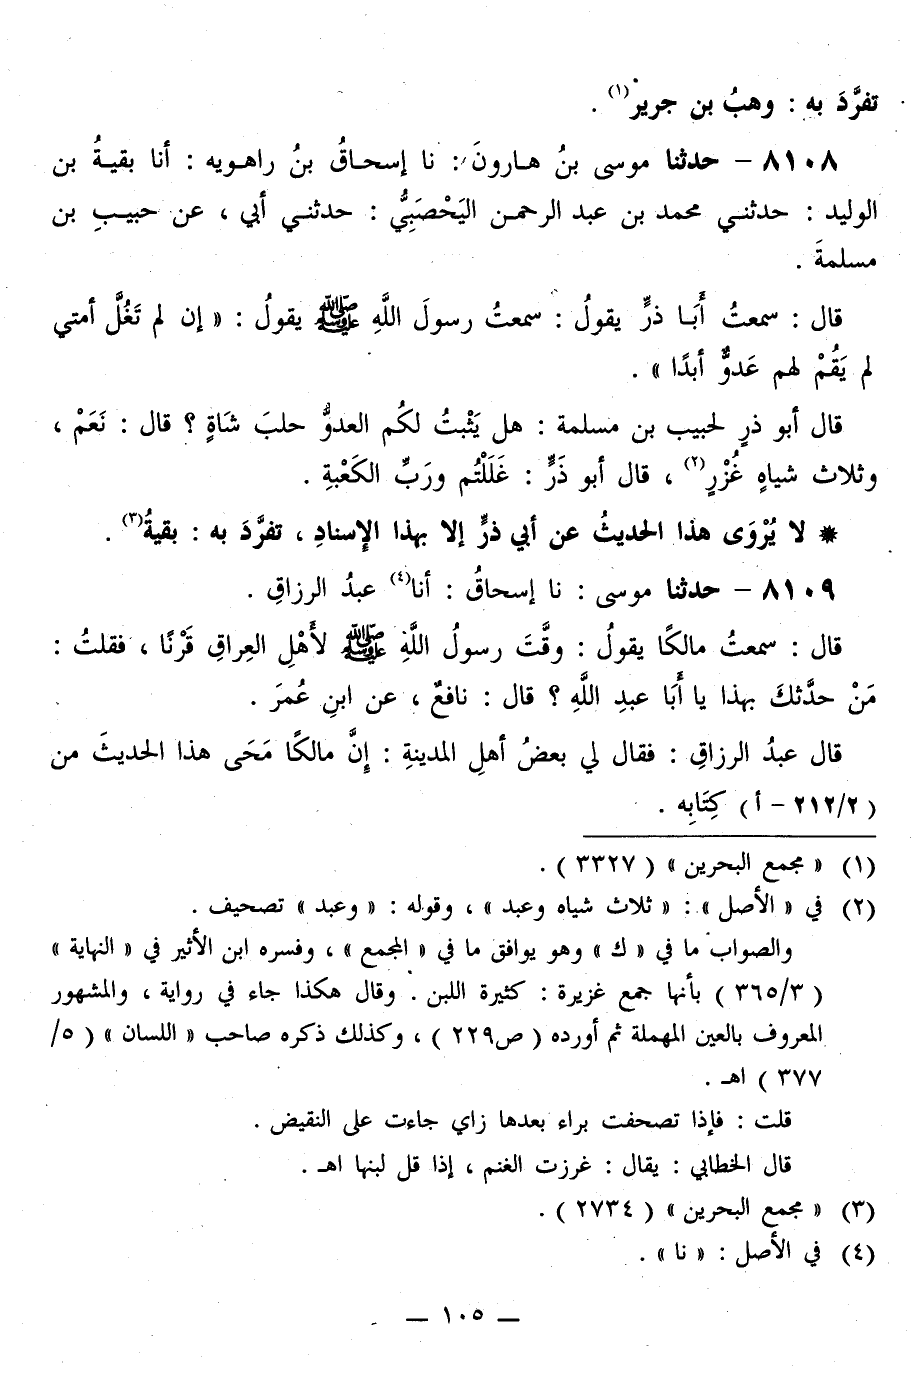 تفرَّدَ به : وهبُ بن جرير(١) .
٨١٠٨ – حدثنا موسى بنُ هارونَ : نا إسحاقُ بنُ راهويه : أنا بقيةُ بن
الوليد : حدثني محمد بن عبد الرحمن اليَحْصَبِيُّ : حدثني أبي ، عن حبيبِ بن
مسلمةَ .
قال : سمعتُ أَبَا ذرٍّ يقولُ : سمعتُ رسولَ اللَّهِ ﷺ يقولُ : « إن لم تَغُلَّ أمتي
لم يَقُمْ لهم عَدوٌّ أبدًا » .
قال أبو ذرٍ لحبيب بن مسلمة : هل يَثْبتُ لكُم العدوُّ حلبَ شَاةٍ ؟ قال : نَعَمْ ،
وثلاث شياهٍ غُزْرٍ(٢) ، قال أبو ذَرٍّ : غَلَلْتُم ورَبِّ الكَعْبةِ .
* لا يُرْوَى هذا الحديثُ عن أبي ذرٍّ إلا بهذا الإسنادِ ، تفرَّدَ به : بقيةُ(٣) .
٨١٠٩ – حدثنا موسى : نا إسحاقُ : أنا(٤) عبدُ الرزاقِ .
قال : سمعتُ مالكًا يقولُ : وقَّتَ رسولُ اللَّهِ ﷺ لأَهْلِ العِراقِ قَرْنًا ، فقلتُ :
مَنْ حدَّثكَ بهذا يا أَبَا عبدِ اللَّهِ ؟ قال : نافعٌ ، عن ابنِ عُمرَ .
قال عبدُ الرزاقِ : فقال لي بعضُ أهلِ المدينةِ : إِنَّ مالكًا مَحَى هذا الحديثَ من
( ٢١٢/٢ – أ ) كِتَابِه .
(١) « مجمع البحرين » ( ٣٣٢٧ ) .
(٢) في « الأصل » : « ثلاث شياه وعبد » ، وقوله : « وعبد » تصحيف .
والصواب ما في « ك » وهو يوافق ما في « المجمع » ، وفسره ابن الأثير في « النهاية »
( ٣٦٥/٣ ) بأنها جمع غزيرة : كثيرة اللبن . وقال هكذا جاء في رواية ، والمشهور
المعروف بالعين المهملة ثم أورده ( ص٢٢٩ ) ، وكذلك ذكره صاحب « اللسان » ( ٥/
٣٧٧ ) اهـ .
قلت : فإذا تصحفت براء بعدها زاي جاءت على النقيض .
قال الخطابي : يقال : غرزت الغنم ، إذا قل لبنها اهـ .
(٣) « مجمع البحرين » ( ٢٧٣٤ ) .
(٤) في الأصل : « نا » .
— ١٠٥ —